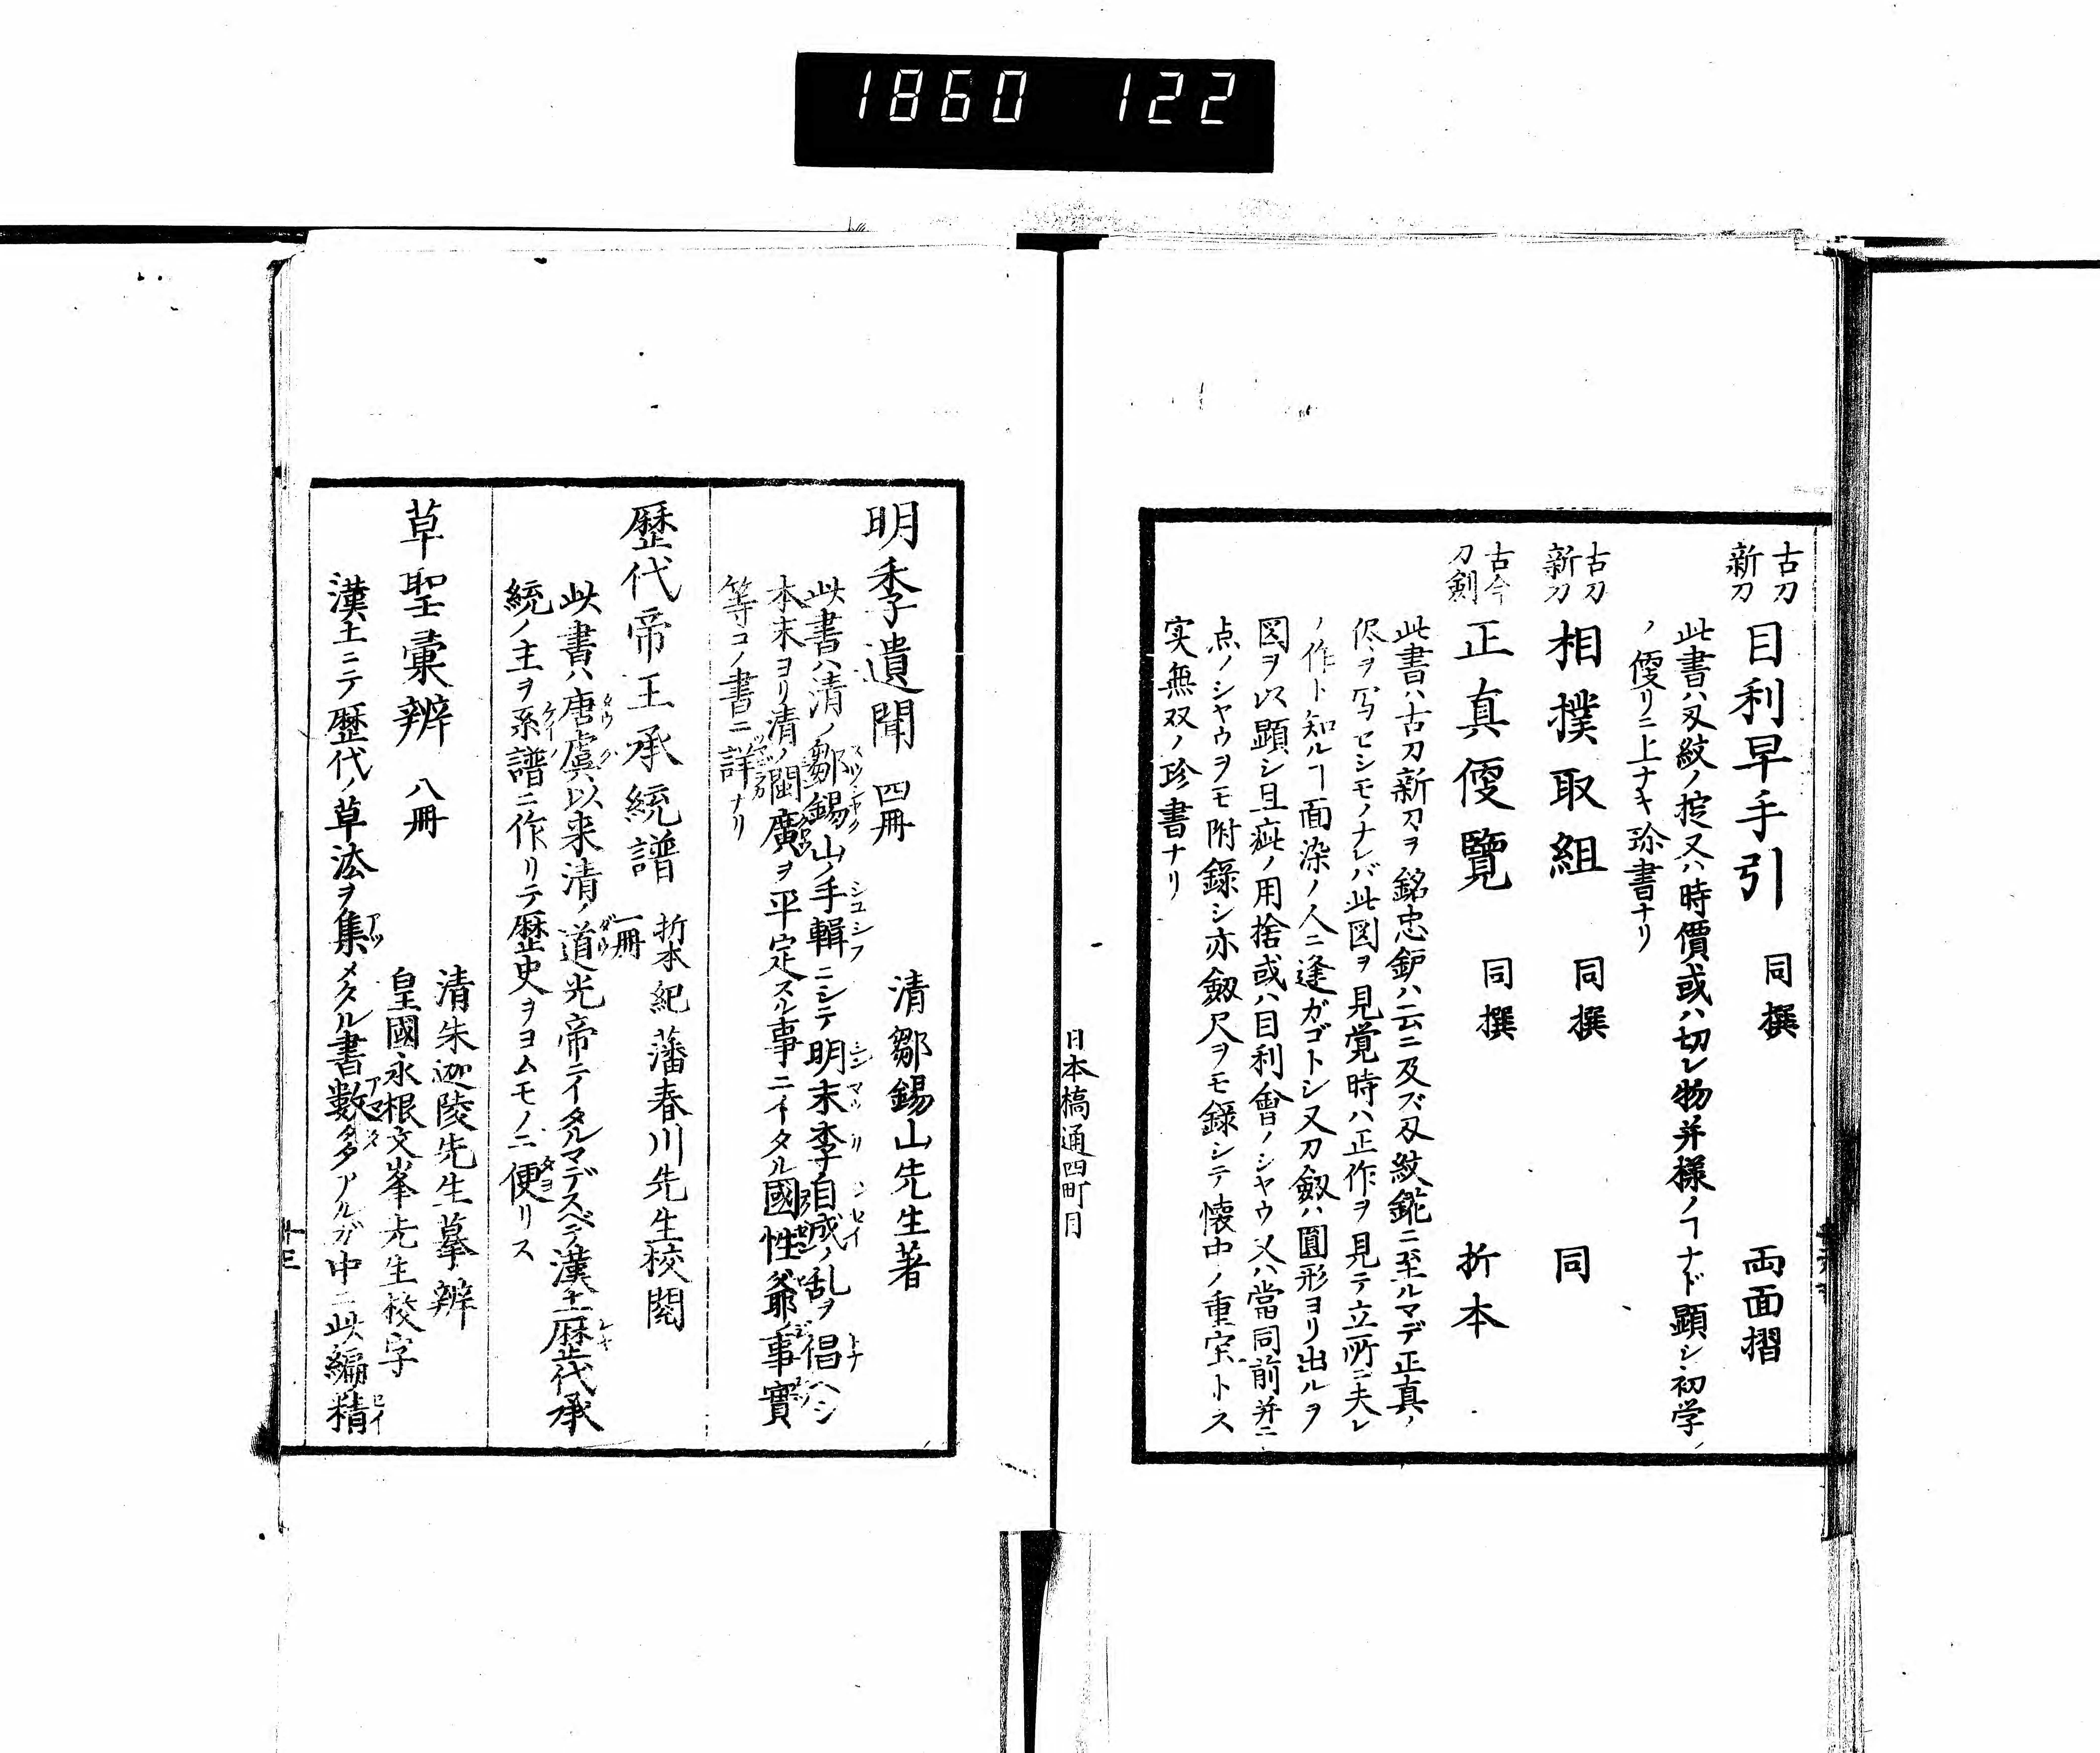 1860 122
古刀新刀 目利早手引 同撰 両面摺
此書ハ刄紋ノ掟又ハ時價或ハ切レ物并様ノヿナド顕シ初学
ノ便リニ上ナキ珎書ナリ
古刀新刀 相撲取組 同撰 同
古今刀剣 正真便覽 同撰 折本
此書ハ古刀新刀ヲ銘忠鈩ハ云ニ及ズ刄紋鉈ニ至ルマデ正真ノ
侭ヲ写セシモノナレバ此図ヲ見覚時ハ正作ヲ見テ立所ニ夫レ
ノ作ト知ルヿ面染ノ人ニ逢ガゴトシ又刀劔ハ圓形ヨリ出ルヲ
図ヲ以顕シ且疵ノ用捨或ハ目利會ノシヤウ又ハ當同前并ニ
点ノシヤウヲモ附錄シ亦劔尺ヲモ錄シテ懐中ノ重宝トス
実無双ノ珍書ナリ
日本橋通四町目
明季遺聞 四冊 清鄒錫山先生著
此書ハ清ノ鄒錫山ノ手輯ニシテ明末李自成ノ乱ヲ倡ヘシ
本末ヨリ清ノ閩廣ヲ平定スル事ニイタル國性爺ノ事實
等コノ書ニ詳ナリ
歴代帝王承統譜 折本一冊 紀藩春川先生校閲
此書ハ唐虞以来清ノ道光帝ニイタルマデスベテ漢土歴代承
統ノ主ヲ系譜ニ作リテ歴史ヲヨムモノニ便リス
草聖彙辨 八冊 清朱迦陵先生摹辨
皇國永根文峯先生校字
漢土ニテ歴代ノ草法ヲ集メタル書數多アルガ中ニ此編精